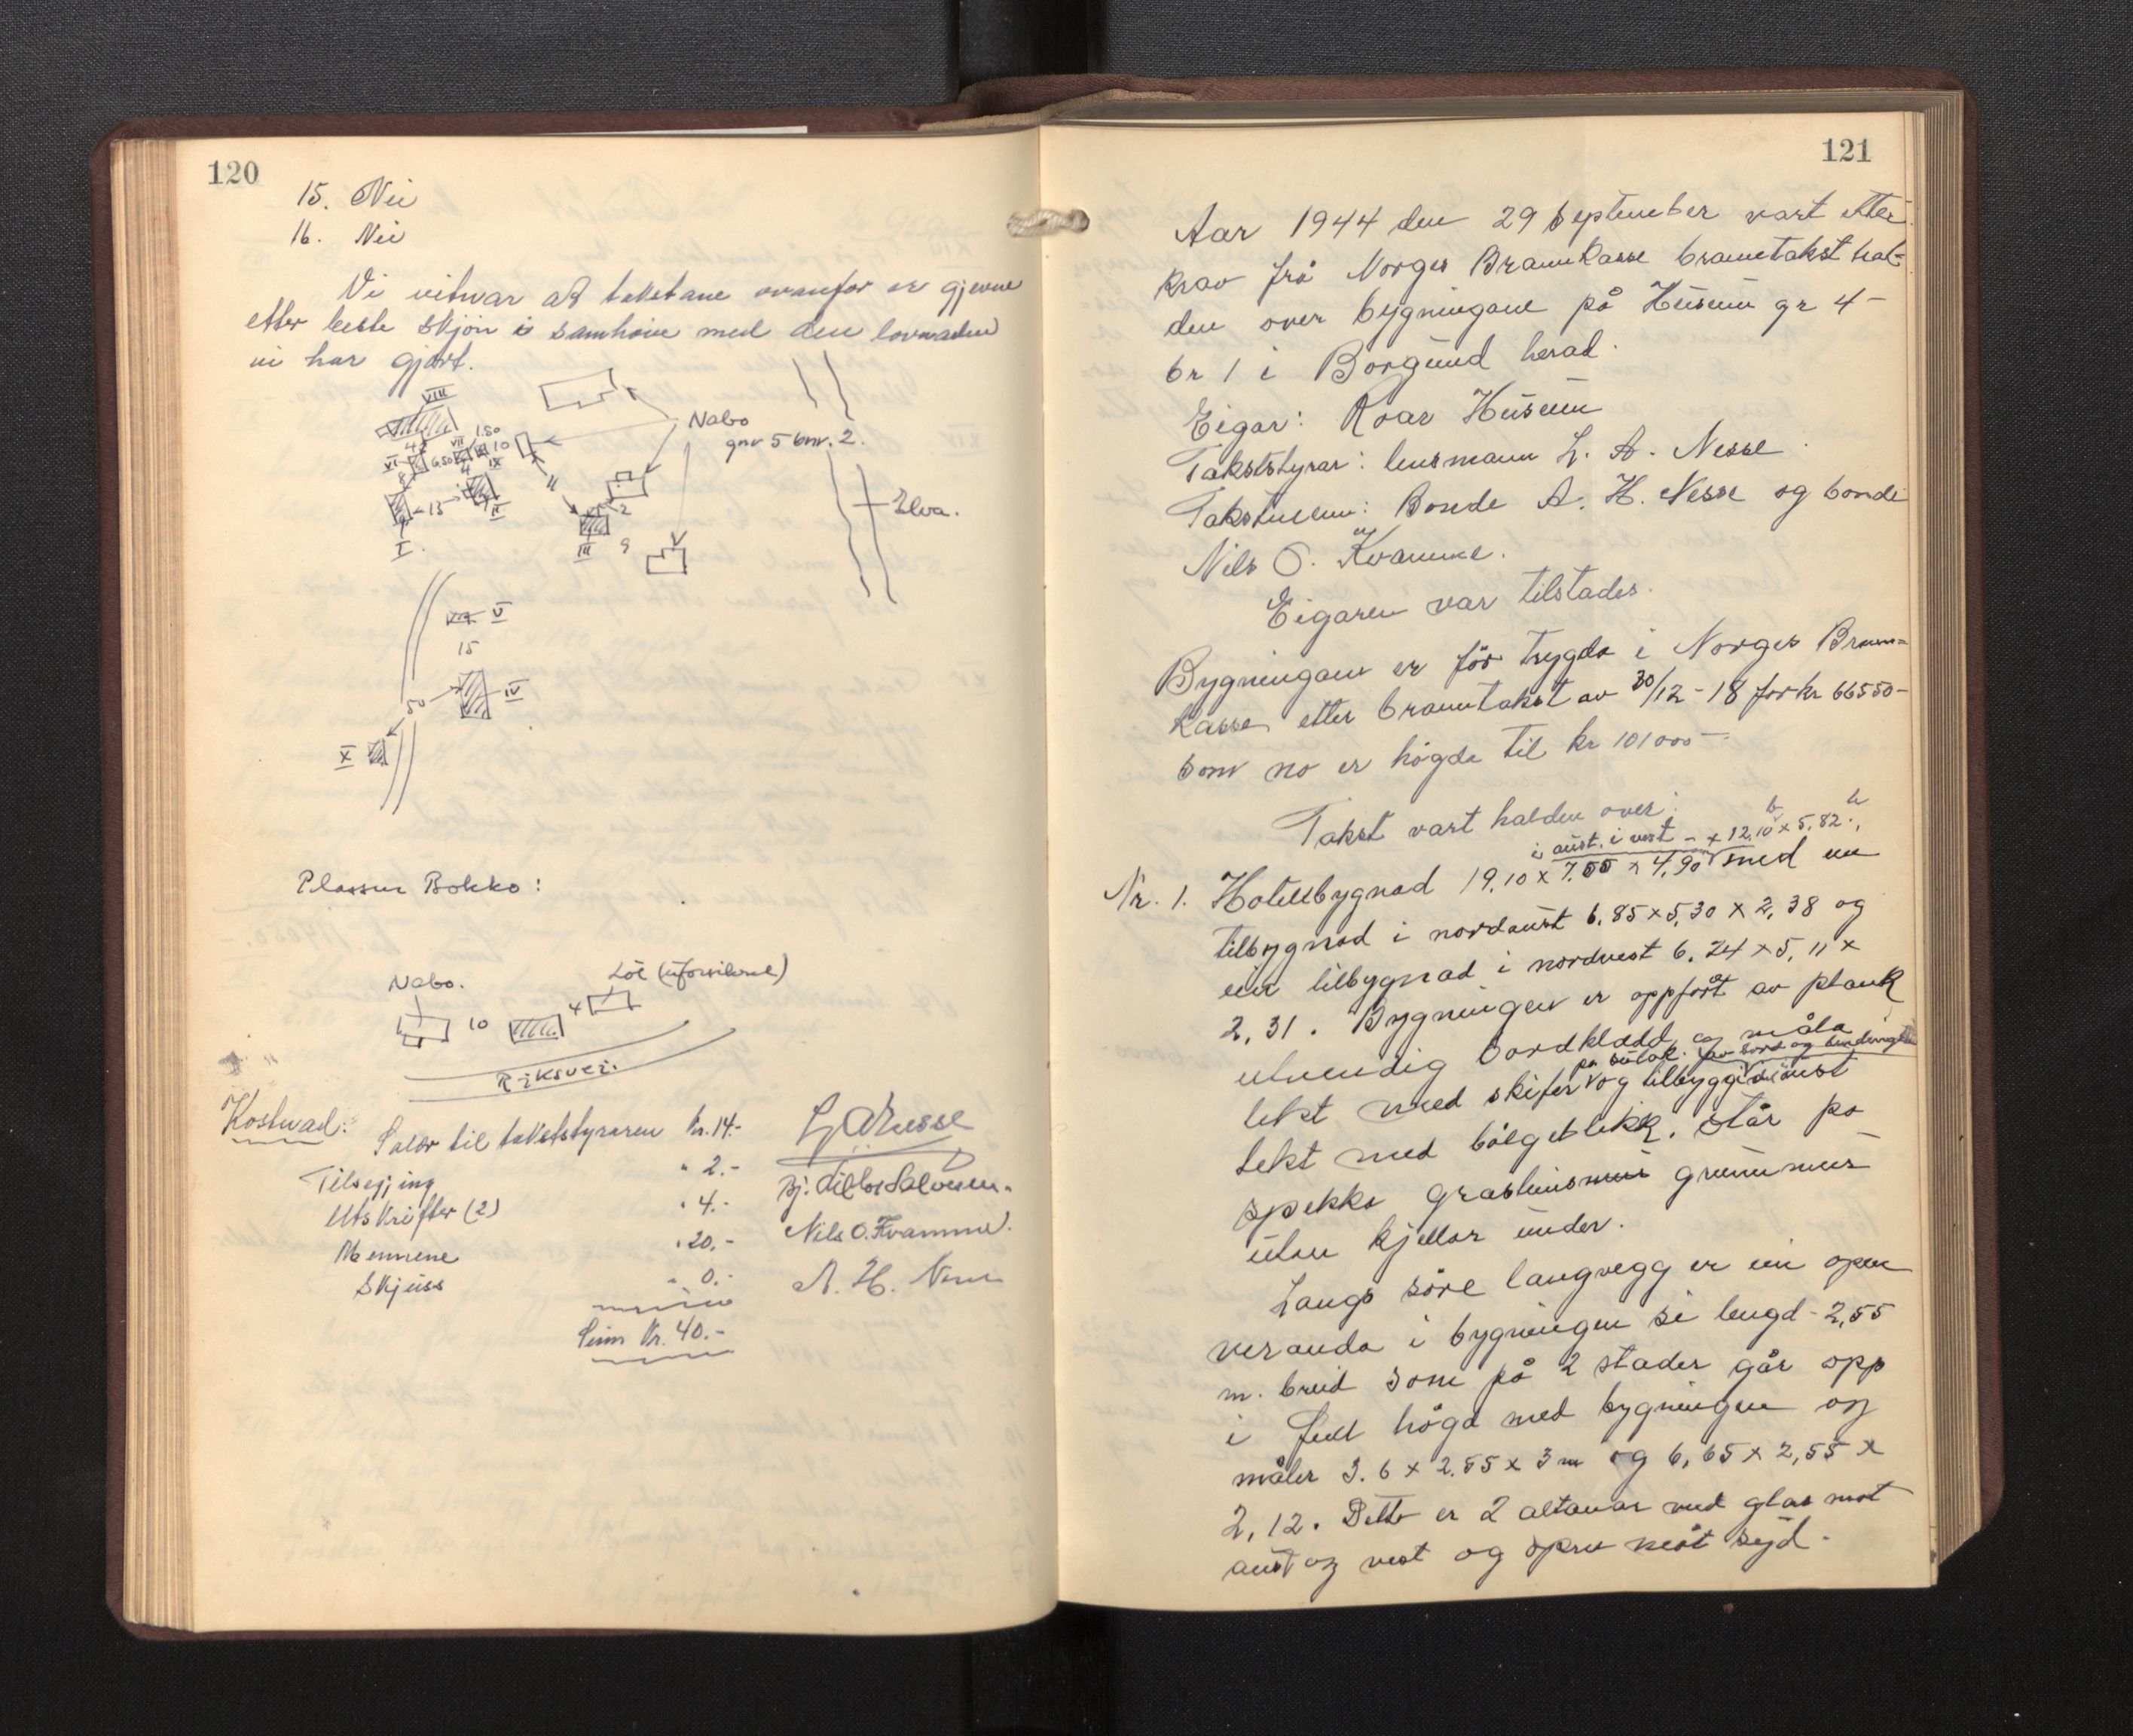 120
15. Nei
16. Nei
Vi vitnar at takstane ovanfor er gjevne
etter beste skjön i samhöve med den lovnaden
vi har gjort.
VIII
Nabo
gnr 5 bnr. 2.
1.50
VII
10
4
XI
6.50
IX
4
8
11
13
II
2
Elva.
I.
III
9
V
15
IV
50
X
Plassen Bokko:
Nabo.
Löe (uforsikra)
10
4
Riksvei.
Kostnad:
Salær til takststyraren kr. 14.-
Tilsegjing " 2.-
Utskrifter (2) " 4.-
Mennene " 20.-
Skjuss " 0.-
Sum kr. 40.-
L A Nesse
Nils O. Kvamme.
A. H. Nesse
121
Aar 1944 den 29 september vart etter
krav frå Norges Brannkasse branntakst hal-
den over bygningane på Husum gr 4-
br 1 i Borgund herad.
Eigar: Roar Husum
Takststyrar: lensmann L. A. Nesse
Takstmenn: Bonde A. H. Nesse og bonde
Nils O. Kvamme.
Eigaren var tilstades.
Bygningane er för trygda i Norges Brann-
kasse etter branntakst av 30/12-18 for kr 66550-
som no er högda til kr 101000-
Takst vart halden over:
i aust. i vest - x 12,10 x 5,82.
b h
Nr. 1. Hotellbygnad 19,10 x 7,55 x 4,90 med en
tilbygnad i nordaust 6,85 x 5,30 x 2,38 og
ein tilbygnad i nordvest 6,24 x 5,11 x
2,31. Bygningen er oppfört av plank
utvendig bordkledd og måla
på sutak. av bord og bindingsverk
tekt med skifer og tilbygget i aust
tekt med bölgeblekk. Står på
spekka grasteinsmur grunnmur
utan kjellar under.
Langs söre langvegg er ein open
veranda i bygningen si lengd - 2,55
m. breid som på 2 stader går opp
i full högd med bygningen og
måler 3.6 x 2.55 x 3 m og 6,65 x 2,55 x
2,12. Dette er 2 altanar med glas mot
aust og vest og open mot syd.